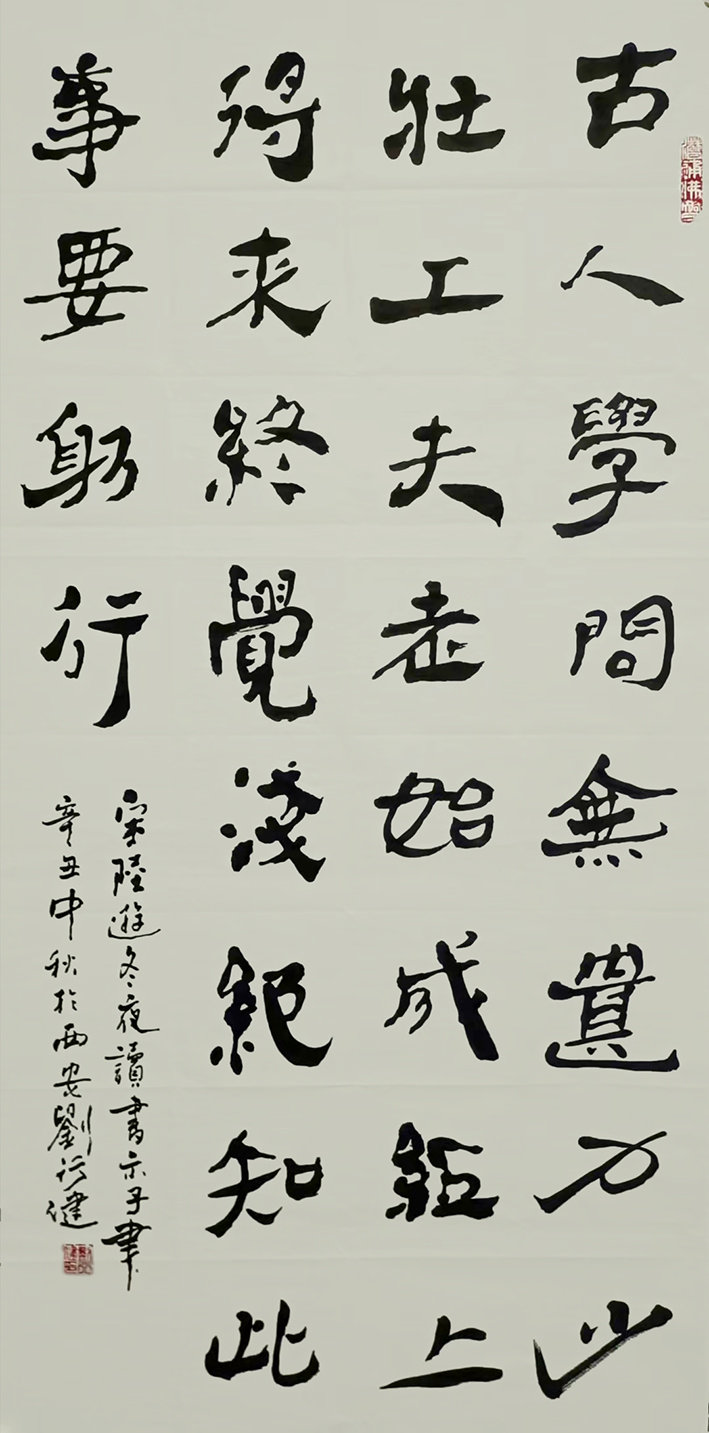 古人學問無遺力少
壯工夫老始成紙上
得來終覺淺絕知此
事要躬行
宋陸遊冬夜讀書示子聿
辛丑中秋於西安劉行健